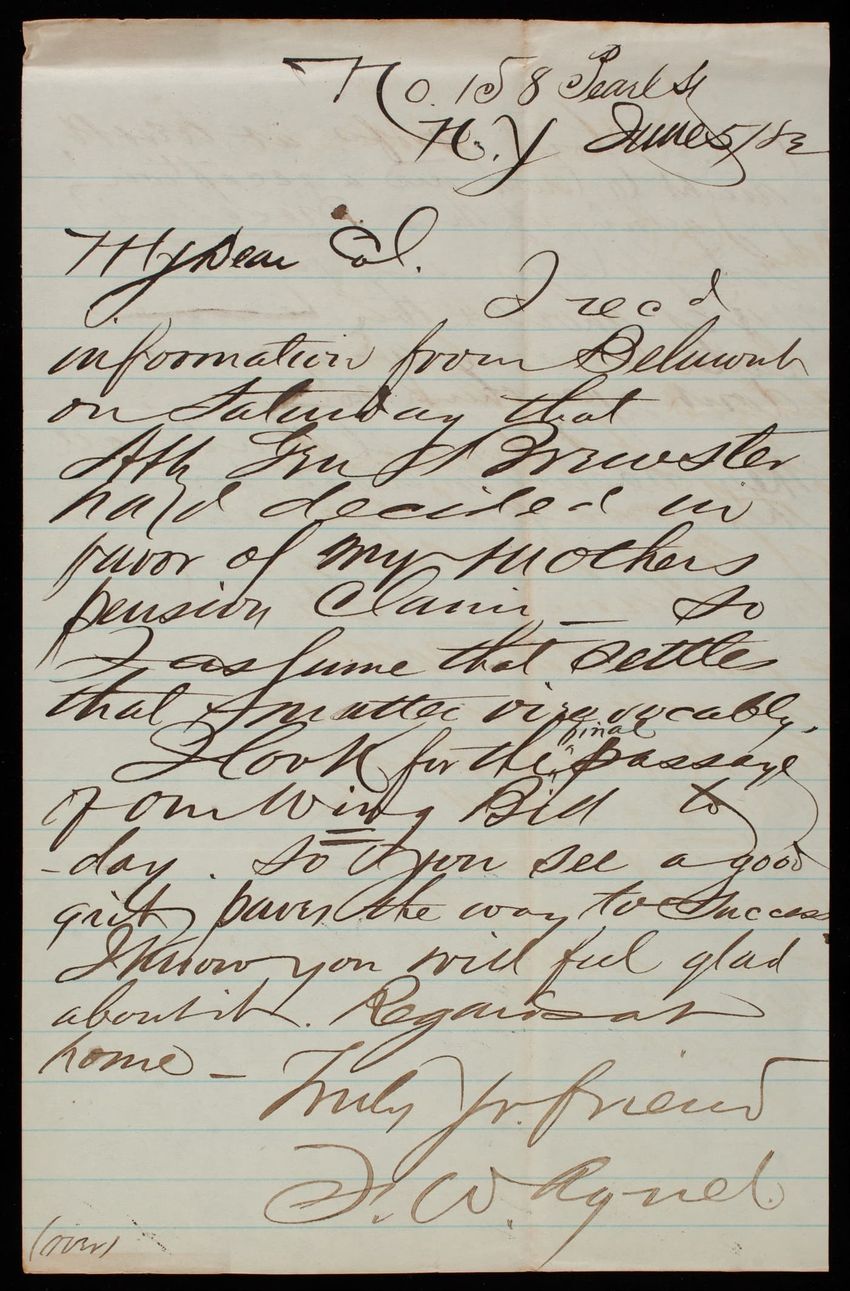 No. 158 Pearl St
N.Y June 5/82
My Dear Col.
I recd
information from Belmont
on Saturday that
Atty Genl Brewster
had decided in
favor of my mothers
pension claim _ so
I assume that settles
that matter irrevocably.
I look for the final passage
of our Wing Bill to
-day. So you see a good
grit paves the way to success
I know you will feel glad
about it. Regards at
home _
Truly Yr. friend
W.
(over)